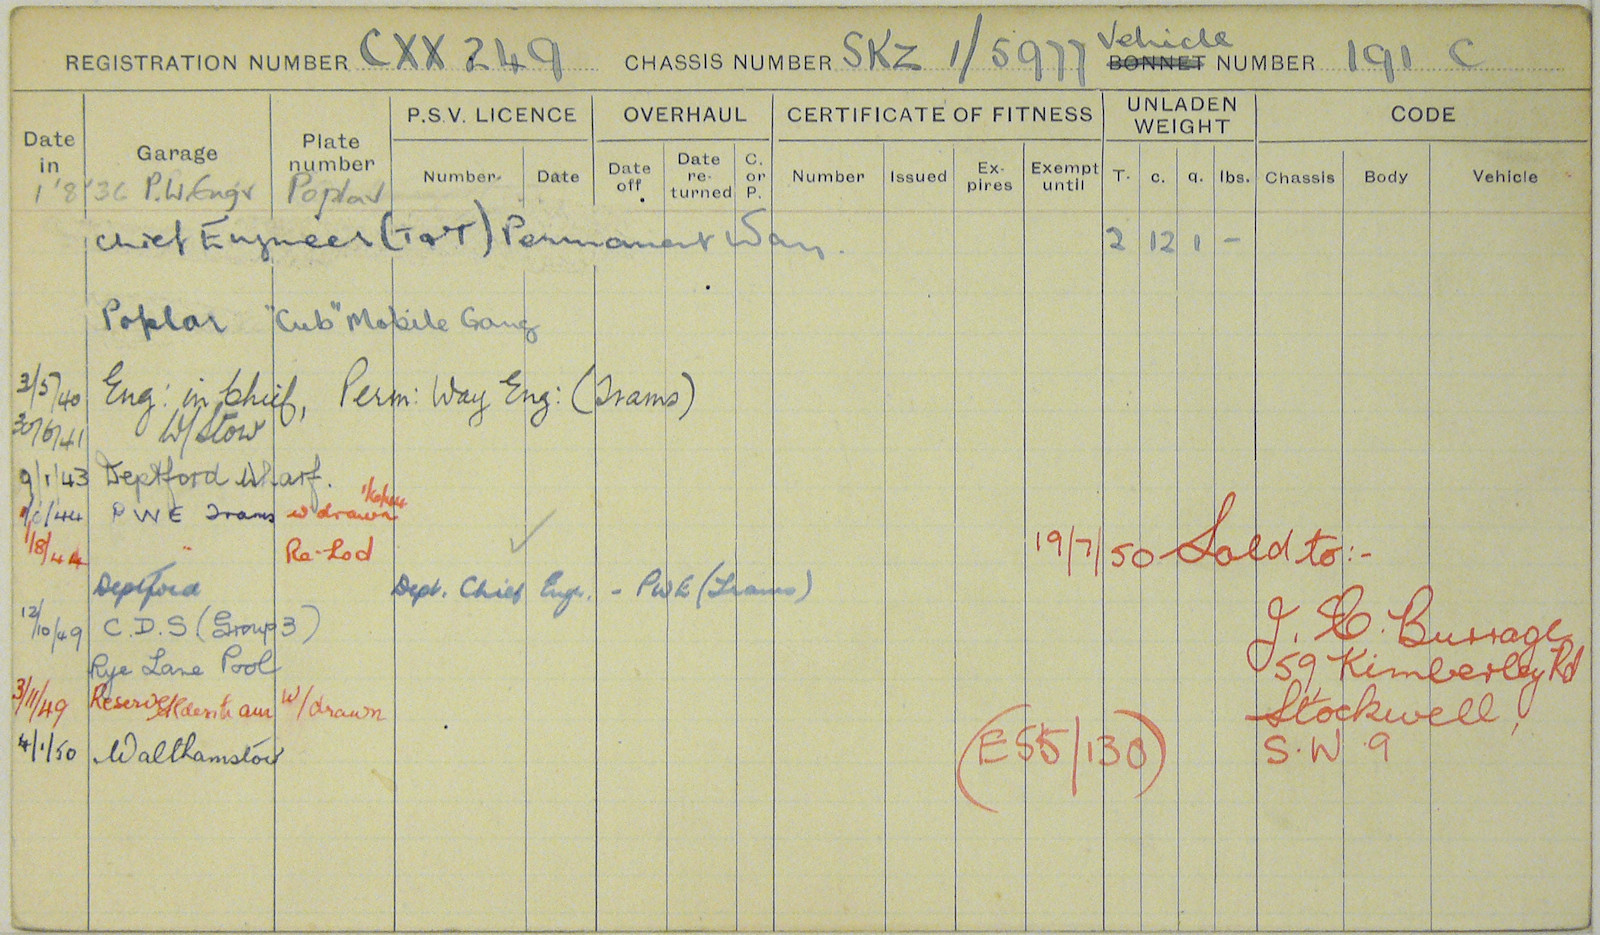 REGISTRATION NUMBER CXX 249 CHASSIS NUMBER SKZ 1/5977 Vehicle BONNET NUMBER 191 C
Date in Garage Plate number P.S.V. LICENCE OVERHAUL CERTIFICATE OF FITNESS UNLADEN WEIGHT CODE
Number. Date Date off Date re-turned C. or P. Number Issued Ex-pires Exempt until T. c. q. lbs. Chassis Body Vehicle
1'8'36 P.W.Engr Poplar
Chief Engineer (T&T) Permanent Way. 2 12 1 -
Poplar "Cub" Mobile Gang
3/5/40 Eng: in Chief, Perm: Way Eng: (Trams)
30/6/41 W/Stow
9/1/43 Deptford Wharf.
/44 P W E Trams w drawn
1/8/44 " Re-Lod
19/7/50 Sold to:-
Deptford Dept. Chief Engr. - PWE (Trams)
12/10/49 C.D.S (Group 3)
J. E. Burrage
Rye Lane Pool
59, Kimberley Rd
3/11/49 Reserve W/drawn
Stockwell,
4/1/50 Walthamstow
(E55/130)
S.W 9